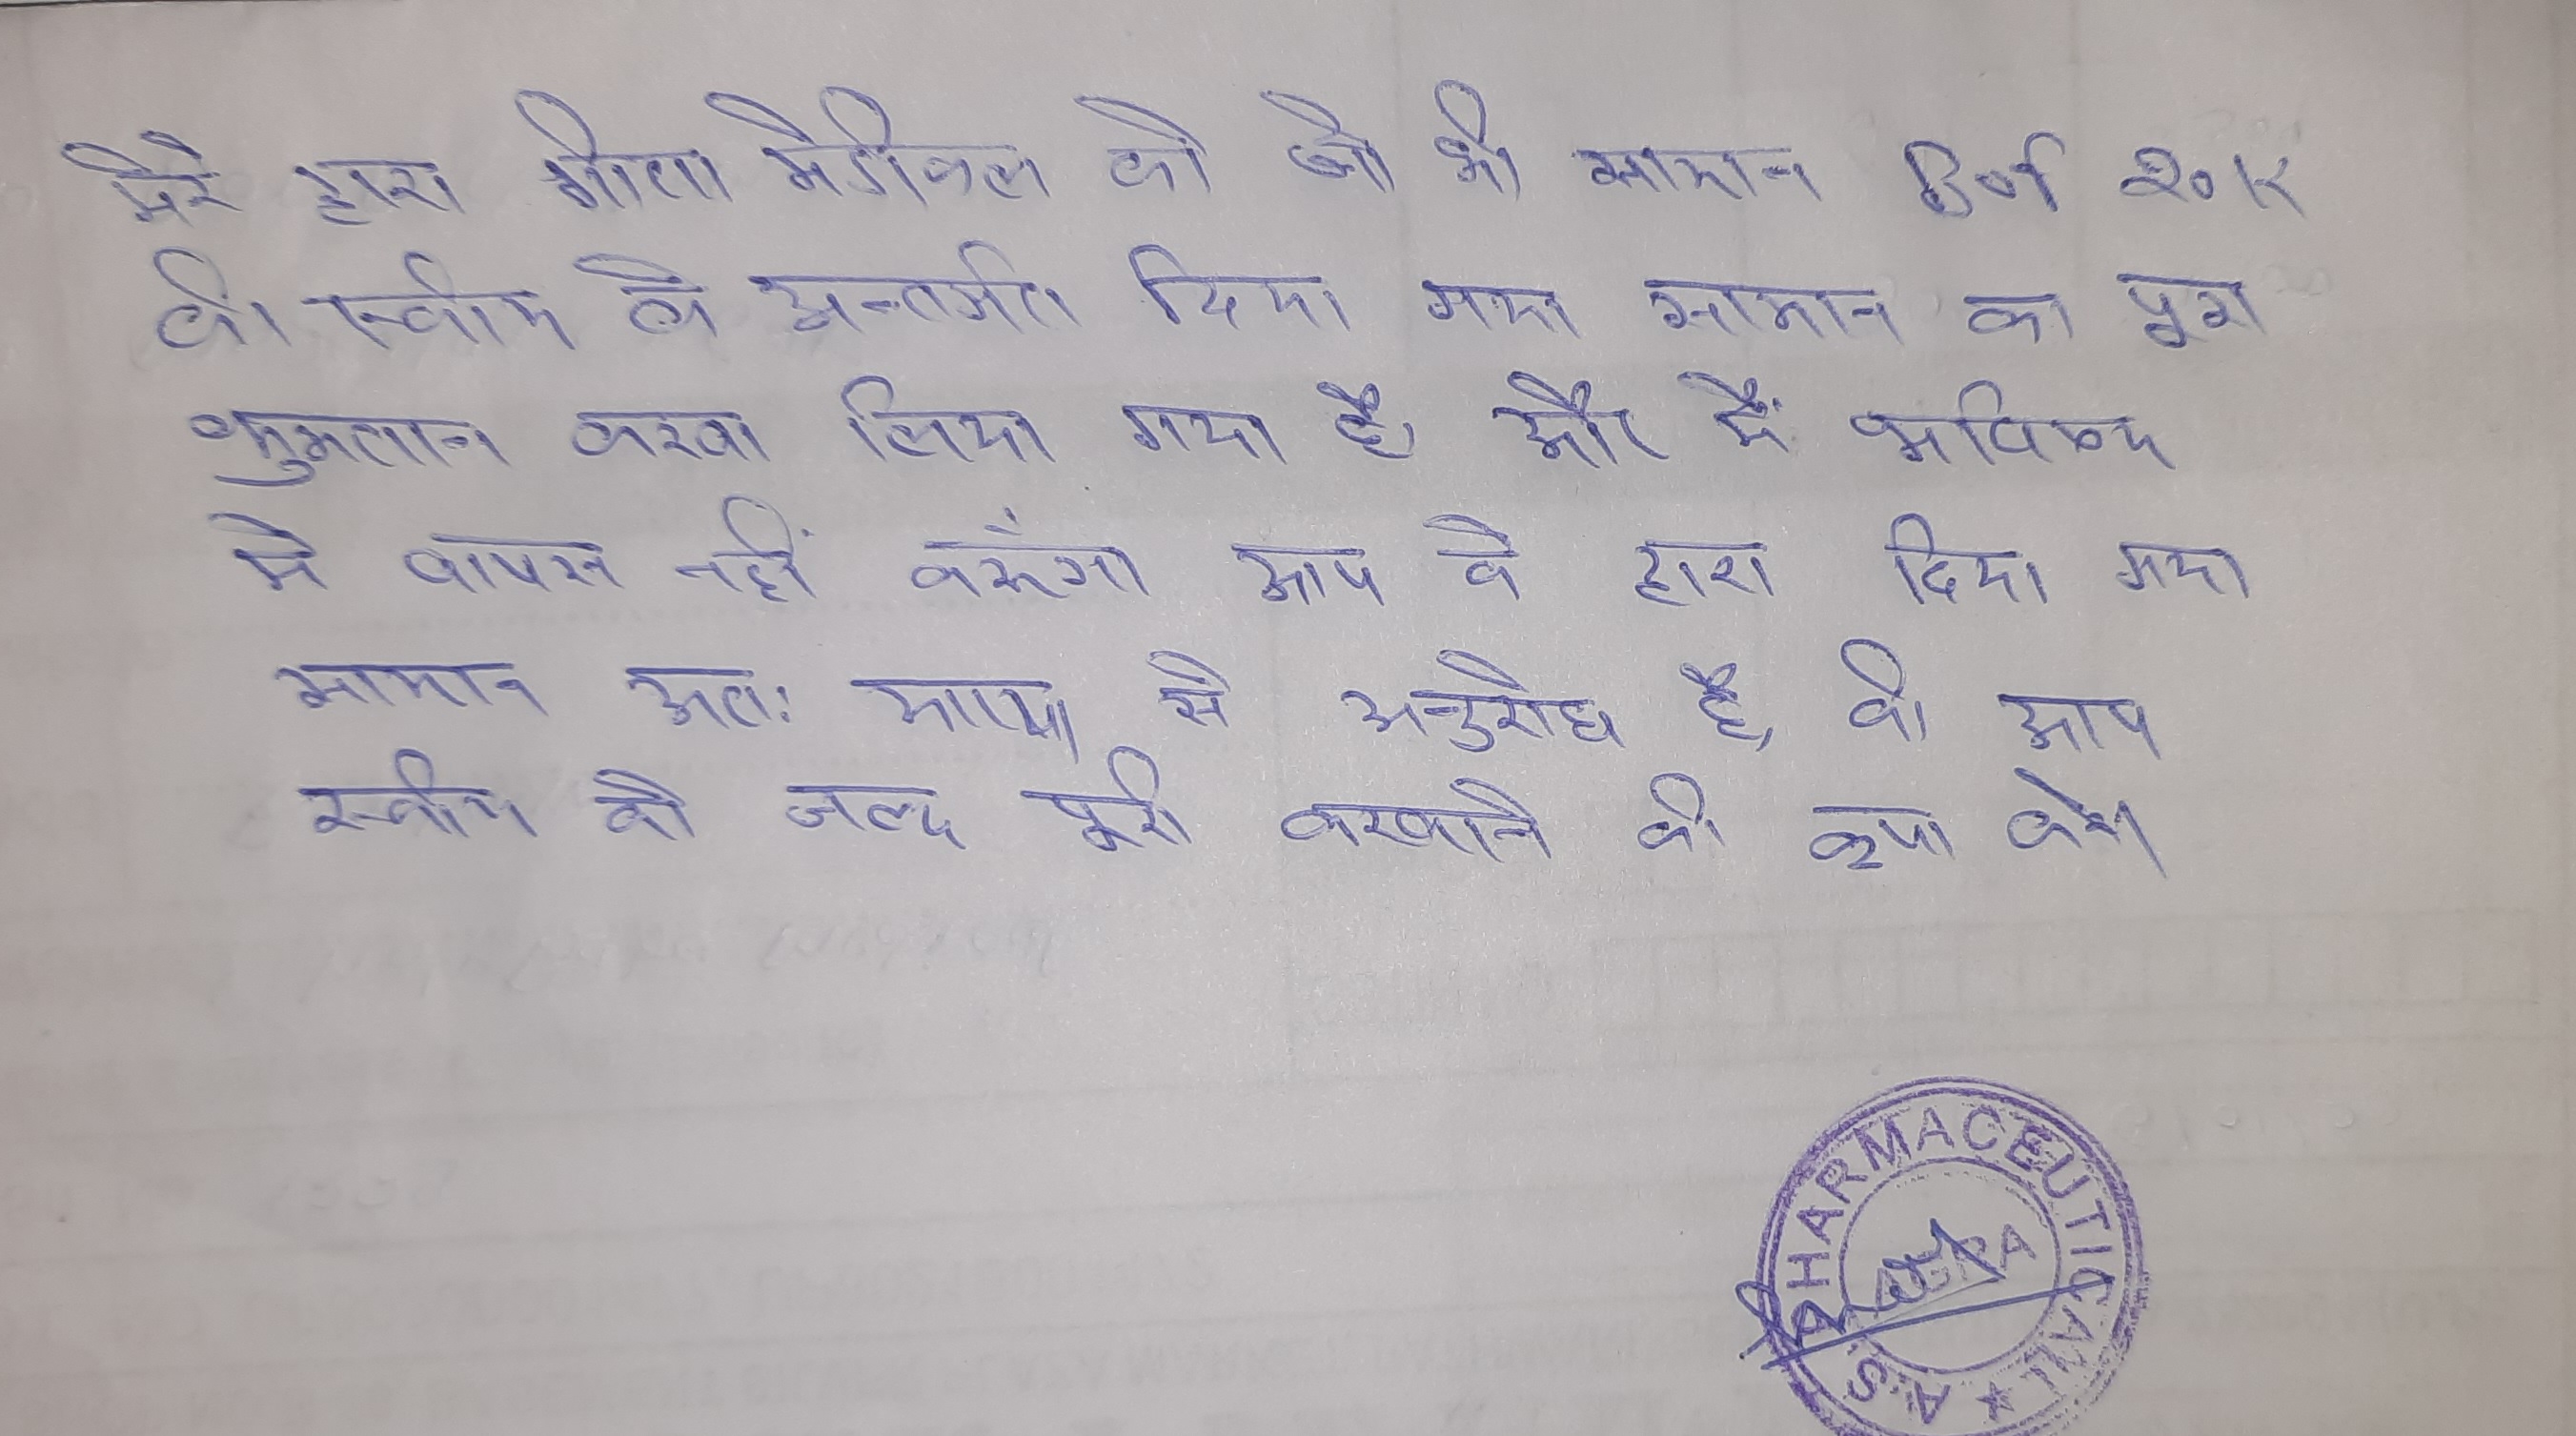 मेरे द्वारा गीता मेडीकल को जो भी सामान
की स्कीम के अन्तर्गत दिया गया सामान का पूरा
भुगतान करवा लिया गया है, और मैं भविष्य
मे वापस नहीं करूंगा आप के द्वारा दिया गया
सामान अतः से अनुरोध है, की आप
स्कीम को जल्द पूरी करवाने की कृपा करे।
A.S. PHARMACEUTICALL ★
AGRA